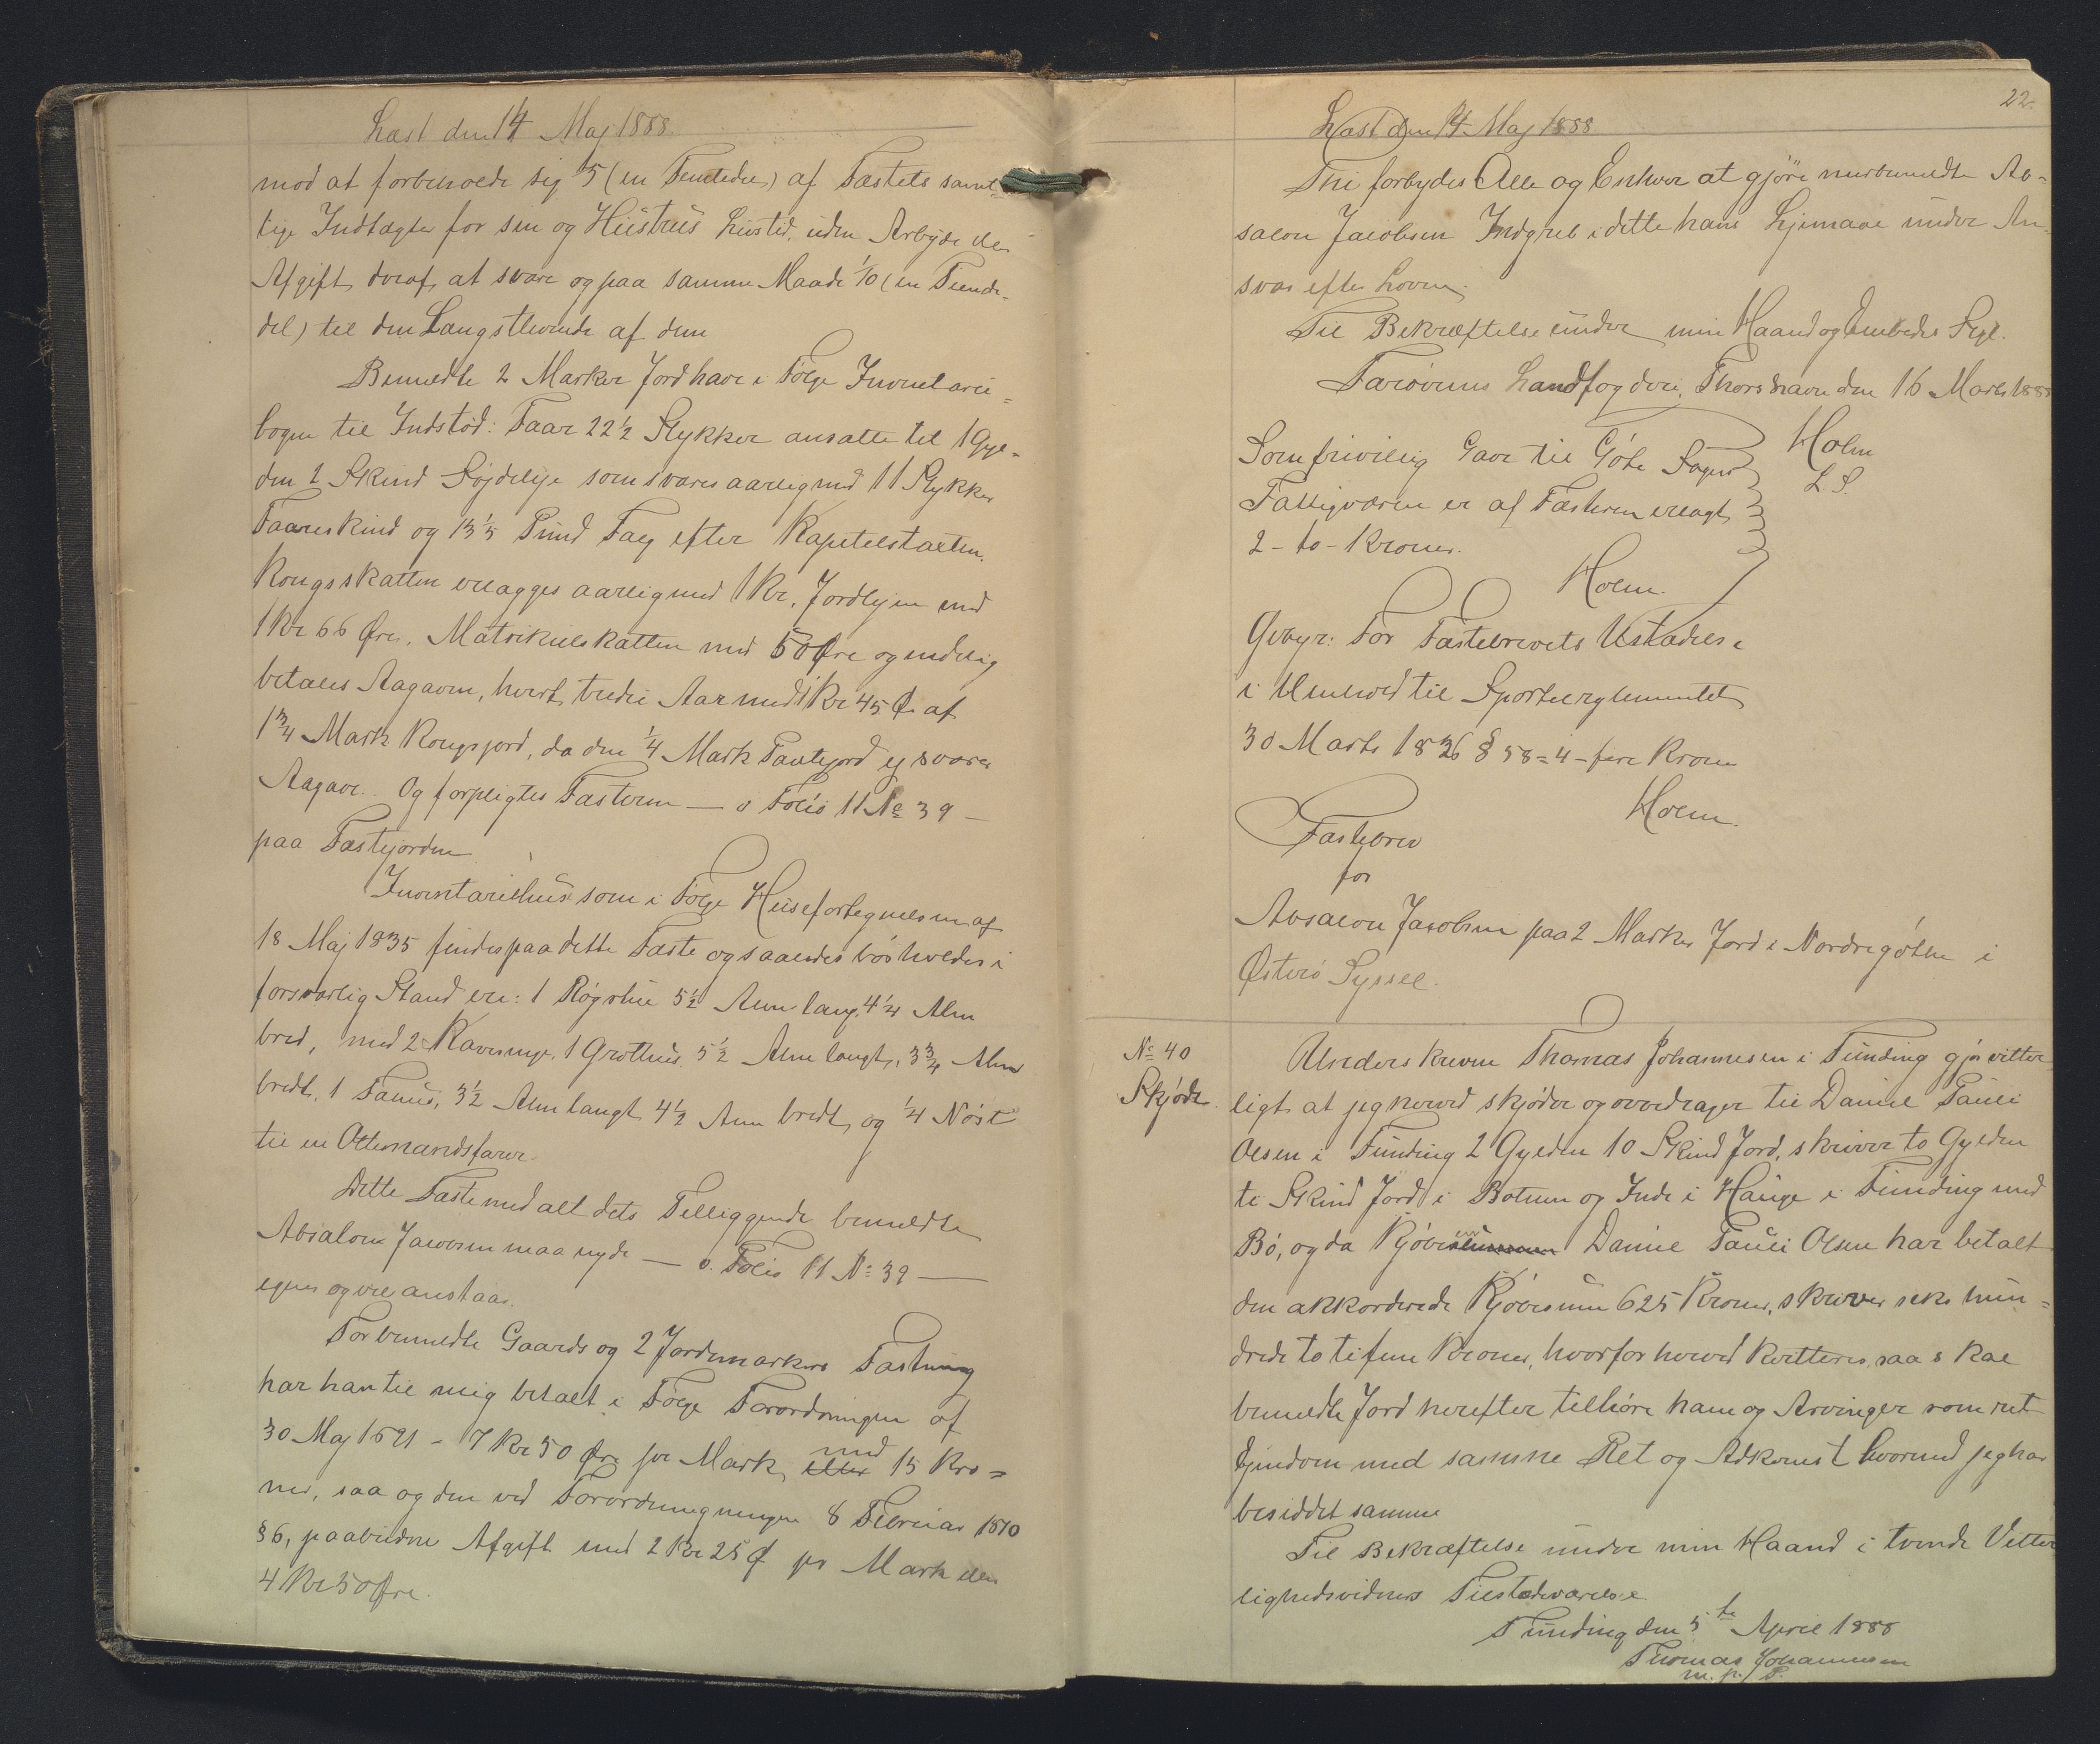 Læst den 14 Maj 1888.
mod at forbeholde sig 1/5 (en Femtedel) af Fæstets samt=
lige Indtægter for sin og Hustrus Livstid, uden Arbejde eller
Afgift deraf at svare og paa samme Maade 1/10 (en Tiende-
del) til den Længstlevende af dem
Bemeldte 2 Marker Jord have i Følge Inventarie=
bogen til Indstød: Faar 22½ Stykker ansatte til 1 Gyl=
den 2 Skind Løjdeleje som svares aarlig med 11 Stykker
Faareskind og 13⅓ Pund Talg efter Kapitelstaxten.
Kongsskatten erlægges aarlig med 1 Kr, Jordlejen med
1 Kr 66 Øre, Matrikulskatten med 50 Øre og endelig
betales Aagaven, hvert tredie Aar med 1 Kr 45 Ø. af
1¾ Mark Kongsjord, da den ¼ Mark Pantejord ej svarer
Aagave. Og forpligtes Fæsteren — v Folio 11 No 39 —
paa Fæstejorden
Inventariehus som i Følge Husefortegnelsen af
18 Maj 1835 findes paa dette Fæste og saaledes bør holdes i
forsvarlig Stand ere: 1 Røgstue 5½ Alen lang, 4¼ Alen
bred, med 2 Kove, 1 Grothus 5½ Alen langt, 3¾ Alen
bredt, 1 Fæhus, 3½ Alen langt 4½ Alen bredt, og ¼ Nøst
til en Ottemandsfarer.
Dette Fæste med alt dets Tilliggende bemeldte
Absalon Jacobsen maa nyde — v. Folio 11 No 39 —
egnes og vel anstaar.
Forbemeldte Gaards og 2 Jordemarkers Fæstning
har han til mig betalt i Følge Forordningen af
30 Maj 1691 - 7 Kr 50 Øre per Mark, eller med 15 Kro=
ner, saa og den ved Forordningningen 8 Februar 1810
§ 6, paabudne Afgift med 2 Kr 25 Ø pr Mark eller
4 Kr 50 Øre.
22.
Læst den 14 Maj 1888
Thi forbydes Alle og Enhver at gjøre merbemeldte Ab=
salon Jacobsen Indgreb i dette hans Lejemaal under An
svar efter Loven.
Til Bekræftelse under min Haand og Embeds Segl.
Færøernes Landfogderi, Thorshavn den 16 Marts 1888
Holm
L S.
Som frivillig Gave til Göte Sogns
Fattigvæsen er af Fæsteren erlagt
2 - to - Kroner.
Holm.
Gebyr: For Fæstebrevets Udstædelse
i Henhold til Sportelreglementet
30 Marts 1836 § 58 = 4 - fire Kroner
Holm.
Fæstebrev
for
Absalon Jacobsen paa 2 Marker Jord i Nordregöthe i
Østerø Syssel.
No 40
Skjöde.
Underskrevne Thomas Johannesen i Funding gjør vitter
ligt at jeg herved skjøder og overdrager til Daniel Pauli
Olsen i Funding 2 Gylden 10 Skind Jord, skriver to Gylden
ti Skind Jord i Botnen og Inde i Hauge i Funding med
Bø, og da Kjøberen Daniel Pauli Olsen har betalt
den akkorderede Kjøbesum 625 Kroner, skriver seks hun=
drede to ti fem Kroner, hvorfor herved kvitteres, saa skal
bemeldte Jord herefter tilhøre ham og Arvinger som ret
Ejendom med samme Ret og Adkomst hvormed jeg har
besiddet samme
Til Bekræftelse under min Haand i tvende Vitter
lighedsvidners Tilstædeværelse
Funding den 5te April 1888
Thomas Johannesen
m. p. P.